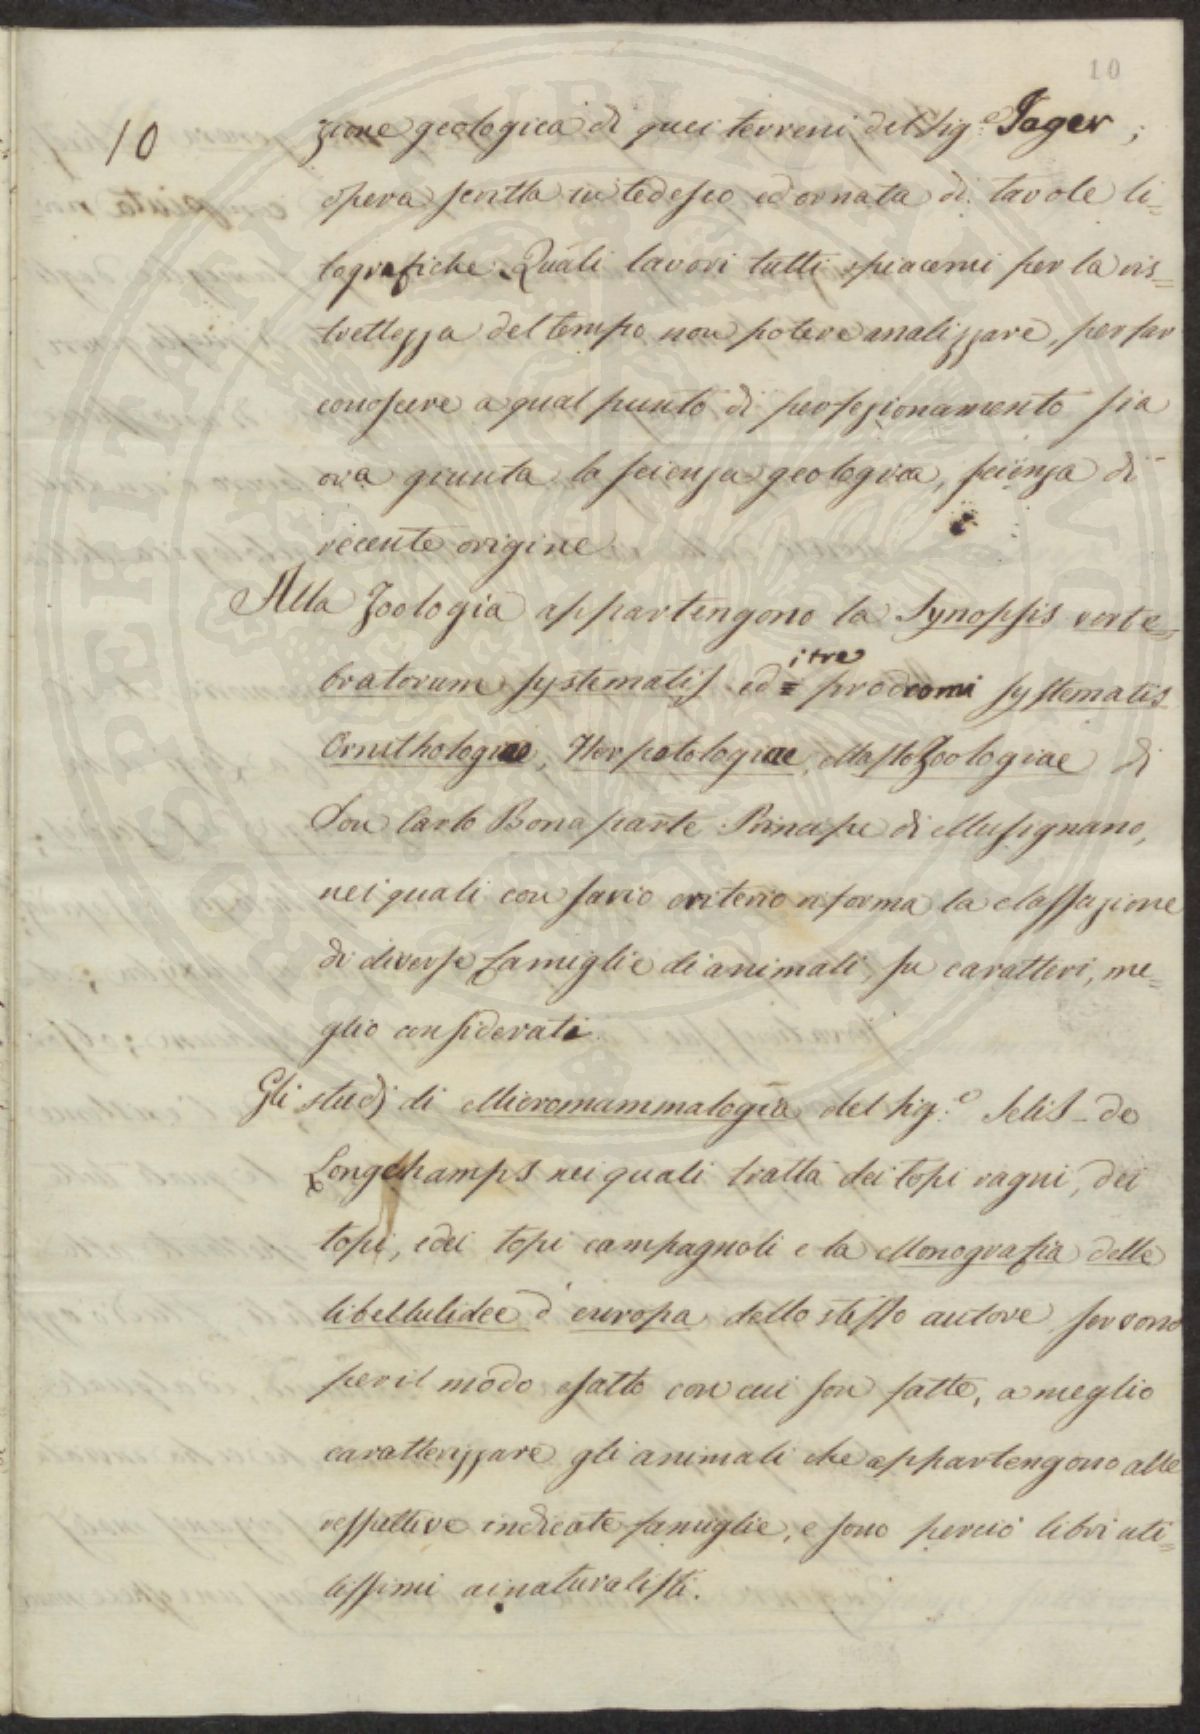 10
10
zione geologica di quei terreni del Sig.e Jager;
opera scritta in tedesco ed ornata di tavole li=
tografiche. Quali lavori tutti spiacemi per la ris=
trettezza del tempo non potere analizzare, per far
conoscere a qual punto di perfezionamento sia
ora giunta la scienza geologica, scienza di
recente origine.
Alla Zoologia appartengono la Synopsis verte=
bratorum systematis ed i tre prodromi systematis
Ornithologiae, Herpetologiae, Mastozoologiae di
Don Carlo Bonaparte Principe di Musignano,
nei quali con savio criterio riforma la classazione
di diverse famiglie di animali su caratteri, me=
glio considerati.
Gli studj di Micromammalogia del Sig.e Selis-de
Longchamps nei quali tratta dei topi ragni, dei
topi, e dei topi campagnoli e la Monografia delle
libellulidee d'europa dello stesso autore servono
per il modo esatto con cui son fatte, a meglio
caratterizzare gli animali che appartengono alle
respettive indicate famiglie, e sono perciò libri uti=
lissimi ai naturalisti.